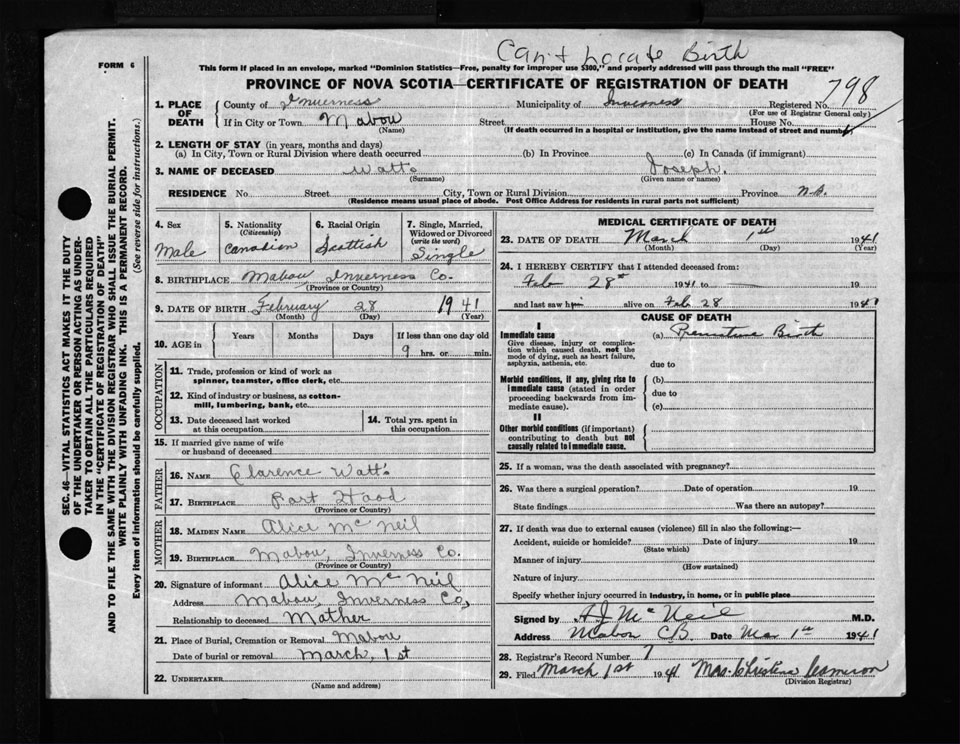 Can't Locate Birth
FORM 6
This form if placed in an envelope, marked "Dominion Statistics—Free, penalty for improper use $300," and properly addressed will pass through the mail "FREE"
PROVINCE OF NOVA SCOTIA—CERTIFICATE OF REGISTRATION OF DEATH
798
1. PLACE OF DEATH
County of Inverness Municipality of Inverness Registered No.
(For use of Registrar General only)
If in City or Town Mabou Street House No.
(Name) (If death occurred in a hospital or institution, give the name instead of street and number)
2. LENGTH OF STAY (in years, months and days)
(a) In City, Town or Rural Division where death occurred (b) In Province (c) In Canada (if immigrant)
3. NAME OF DECEASED Watts Joseph.
(Surname) (Given name or names)
RESIDENCE No. Street City, Town or Rural Division Province N.S.
(Residence means usual place of abode. Post Office Address for residents in rural parts not sufficient)
4. Sex
Male
5. Nationality
(Citizenship)
Canadian
6. Racial Origin
Scottish
7. Single, Married, Widowed or Divorced
(write the word)
Single
8. BIRTHPLACE Mabou, Inverness Co.
(Province or Country)
9. DATE OF BIRTH February 28 1941
(Month) (Day) (Year)
10. AGE in Years Months Days If less than one day old
9 hrs. or min.
OCCUPATION
11. Trade, profession or kind of work as
spinner, teamster, office clerk, etc.
12. Kind of industry or business, as cotton-
mill, lumbering, bank, etc.
13. Date deceased last worked
at this occupation
14. Total yrs. spent in
this occupation
15. If married give name of wife
or husband of deceased
FATHER
16. NAME Clarence Watts
17. BIRTHPLACE Port Hood
(Province or Country)
MOTHER
18. MAIDEN NAME Alice McNeil
19. BIRTHPLACE Mabou, Inverness Co.
(Province or Country)
20. Signature of informant Alice McNeil
Address Mabou, Inverness Co,
Relationship to deceased Mother
21. Place of Burial, Cremation or Removal Mabou
Date of burial or removal March, 1st
22. UNDERTAKER
(Name and address)
MEDICAL CERTIFICATE OF DEATH
23. DATE OF DEATH March 1st 1941
(Month) (Day) (Year)
24. I HEREBY CERTIFY that I attended deceased from:
Feb 28th 1941 to 19
and last saw him alive on Feb 28 1941
CAUSE OF DEATH
I
Immediate cause
Give disease, injury or compli-
cation which caused death, not the
mode of dying, such as heart failure,
asphyxia, asthenia, etc.
(a) Premature Birth
due to
Morbid conditions, if any, giving rise to
immediate cause (stated in order
proceeding backwards from im-
mediate cause).
(b)
due to
(c)
II
Other morbid conditions (if important)
contributing to death but not
causally related to immediate cause.
25. If a woman, was the death associated with pregnancy?
26. Was there a surgical operation? Date of operation 19
State findings Was there an autopsy?
27. If death was due to external causes (violence) fill in also the following:—
Accident, suicide or homicide? Date of injury 19
(State which)
Manner of injury
(How sustained)
Nature of injury
Specify whether injury occurred in industry, in home, or in public place
Signed by A J McNeil M.D.
Address Mabou C.B. Date Mar 1st 1941
28. Registrar's Record Number 7
29. Filed March 1st 1941 Mrs. Christina Cameron
(Division Registrar)
SEC. 46—VITAL STATISTICS ACT MAKES IT THE DUTY
OF THE UNDERTAKER OR PERSON ACTING AS UNDER-
TAKER TO OBTAIN ALL THE PARTICULARS REQUIRED
IN THE "CERTIFICATE OF REGISTRATION OF DEATH"
AND TO FILE THE SAME WITH THE DIVISION REGISTRAR WHO SHALL ISSUE THE BURIAL PERMIT.
WRITE PLAINLY WITH UNFADING INK. THIS IS A PERMANENT RECORD.
Every item of information should be carefully supplied. (See reverse side for instructions.)